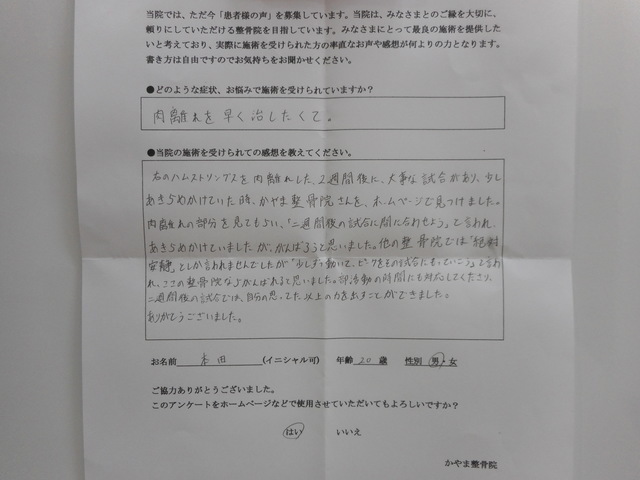 当院では、ただ今「患者様の声」を募集しています。当院は、みなさまとのご縁を大切に、
頼りにしていただける整骨院を目指しています。みなさまにとって最良の施術を提供した
いと考えており、実際に施術を受けられた方の率直なお声や感想が何よりの力となります。
書き方は自由ですのでお気持ちをお聞かせください。
●どのような症状、お悩みで施術を受けられていますか?
肉離れを早く治したくて。
●当院の施術を受けられての感想を教えてください。
右のハムストリングスを肉離れした、2週間後に、大事な試合があり、少し
あきらめかけていた時、かやま整骨院さんを、ホームページで見つけました。
肉離れの部分を見てもらい、「二週間後の試合に間に合わせよう」と言われ、
あきらめかけていましたが、がんばろうと思いました。他の整骨院では「絶対
安静」としか言われませんでしたが「少しずつ動いて、ピークをその試合にもっていこう」と言わ
れ、ここの整骨院ならがんばれると思いました。部活動の時間にも対応してくださり、
二週間後の試合では、自分の思ってた以上の力を出すことができました。
ありがとうございました。
お名前 本田 (イニシャル可) 年齢 20 歳 性別 男・女
ご協力ありがとうございました。
このアンケートをホームページなどで使用させていただいてもよろしいですか?
はい いいえ
かやま整骨院